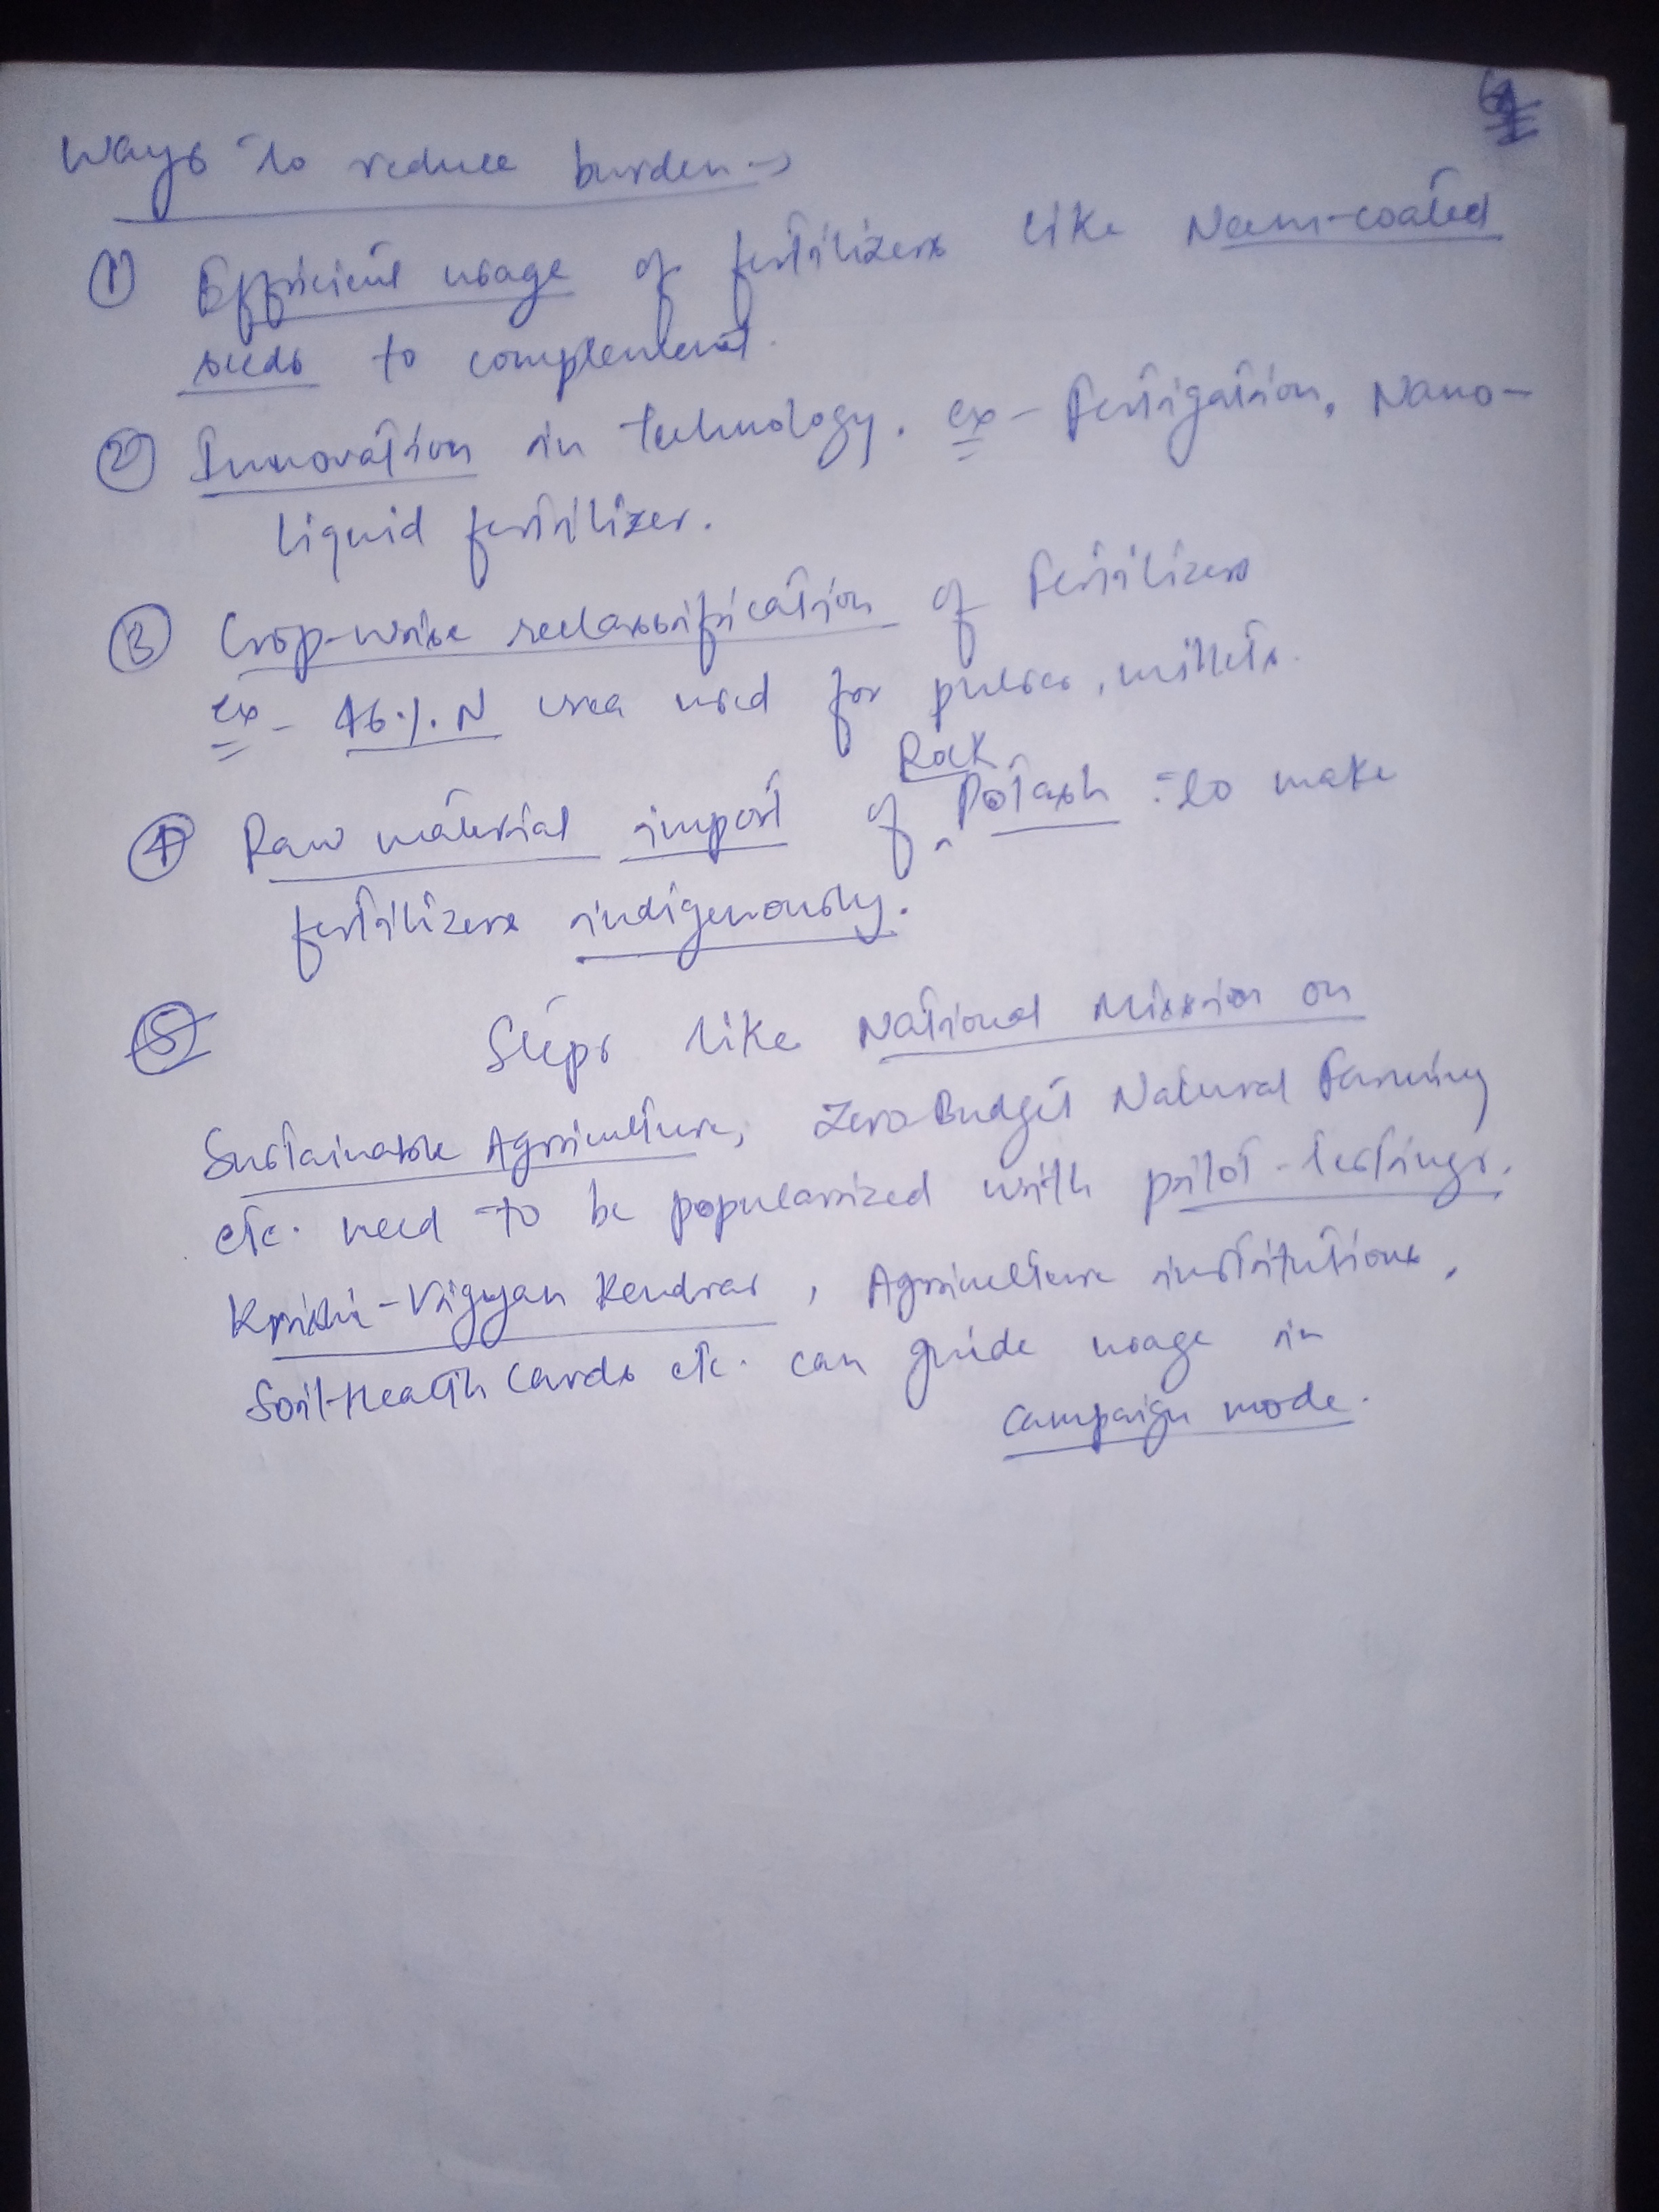 Ways to reduce burden →
① Efficient usage of fertilizers like Neem-coated
seeds to complement.
② Innovation in technology. ex - Fertigation, Nano-
liquid fertilizer.
③ Crop-wise reclassification of Fertilizers
ex - 46% N urea used for pulses, millets.
Rock
④ Raw material import of ^ Potash to make
fertilizers indigenously.
Steps like National Mission on
Sustainable Agriculture, Zero Budget Natural Farming
etc. need to be popularized with pilot-testings.
Krishi-Vigyan Kendras, Agriculture institutions,
Soil-Health Cards etc. can guide usage in
campaign mode.